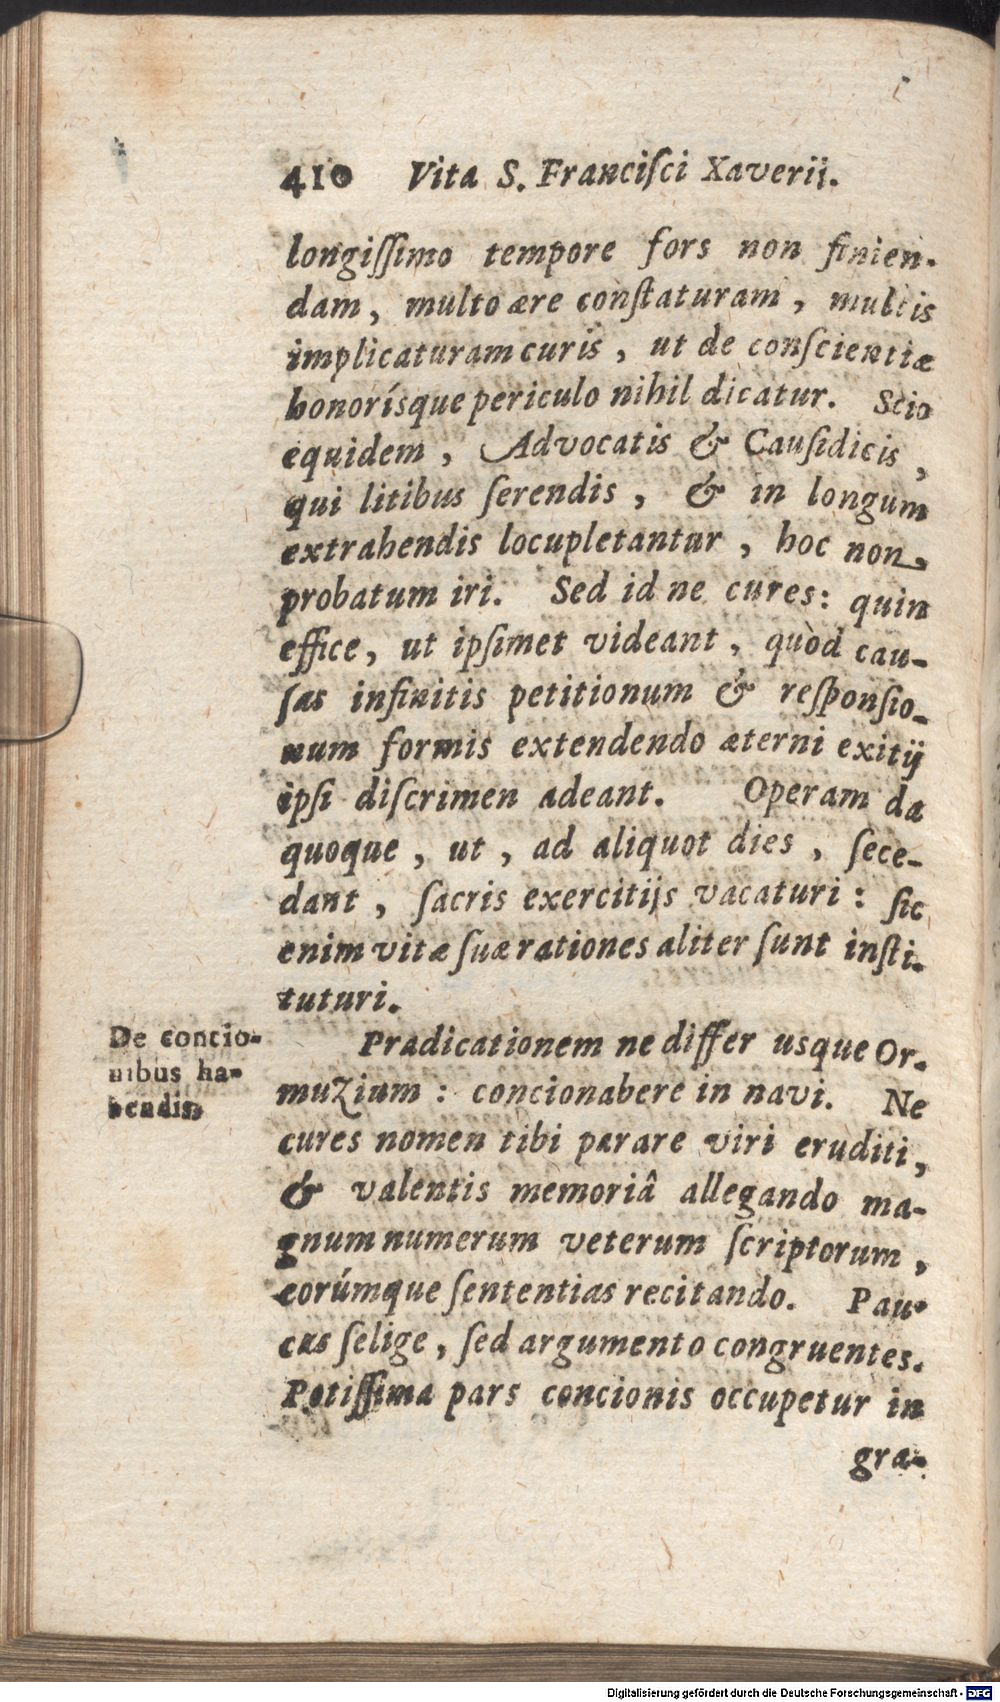 410 Vita S. Franciſci Xaverii.
longiſſimo tempore fors non finien-
dam, multo ære conſtaturam, multis
implicaturam curis, ut de conſcientiæ
honorísque periculo nihil dicatur. Scio
equidem, Advocatis & Cauſidicis,
qui litibus ſerendis, & in longum
extrahendis locupletantur, hoc non
probatum iri. Sed id ne cures: quin
effice, ut ipſimet videant, quòd cau-
ſas infinitis petitionum & reſponſio-
num formis extendendo æterni exitij
ipſi diſcrimen adeant. Operam da
quoque, ut, ad aliquot dies, ſece-
dant, ſacris exercitijs vacaturi: ſic
enim vitæ ſuæ rationes aliter ſunt inſti-
tuturi.
De concio-
nibus ha-
bendis.
Prædicationem ne differ usque Or-
muzium: concionabere in navi. Ne
cures nomen tibi parare viri eruditi,
& valentis memoriâ allegando ma-
gnum numerum veterum ſcriptorum,
eorúmque ſententias recitando. Pau-
cas ſelige, ſed argumento congruentes.
Potiſſima pars concionis occupetur in
gra-
Digitalisierung gefördert durch die Deutsche Forschungsgemeinschaft - DFG